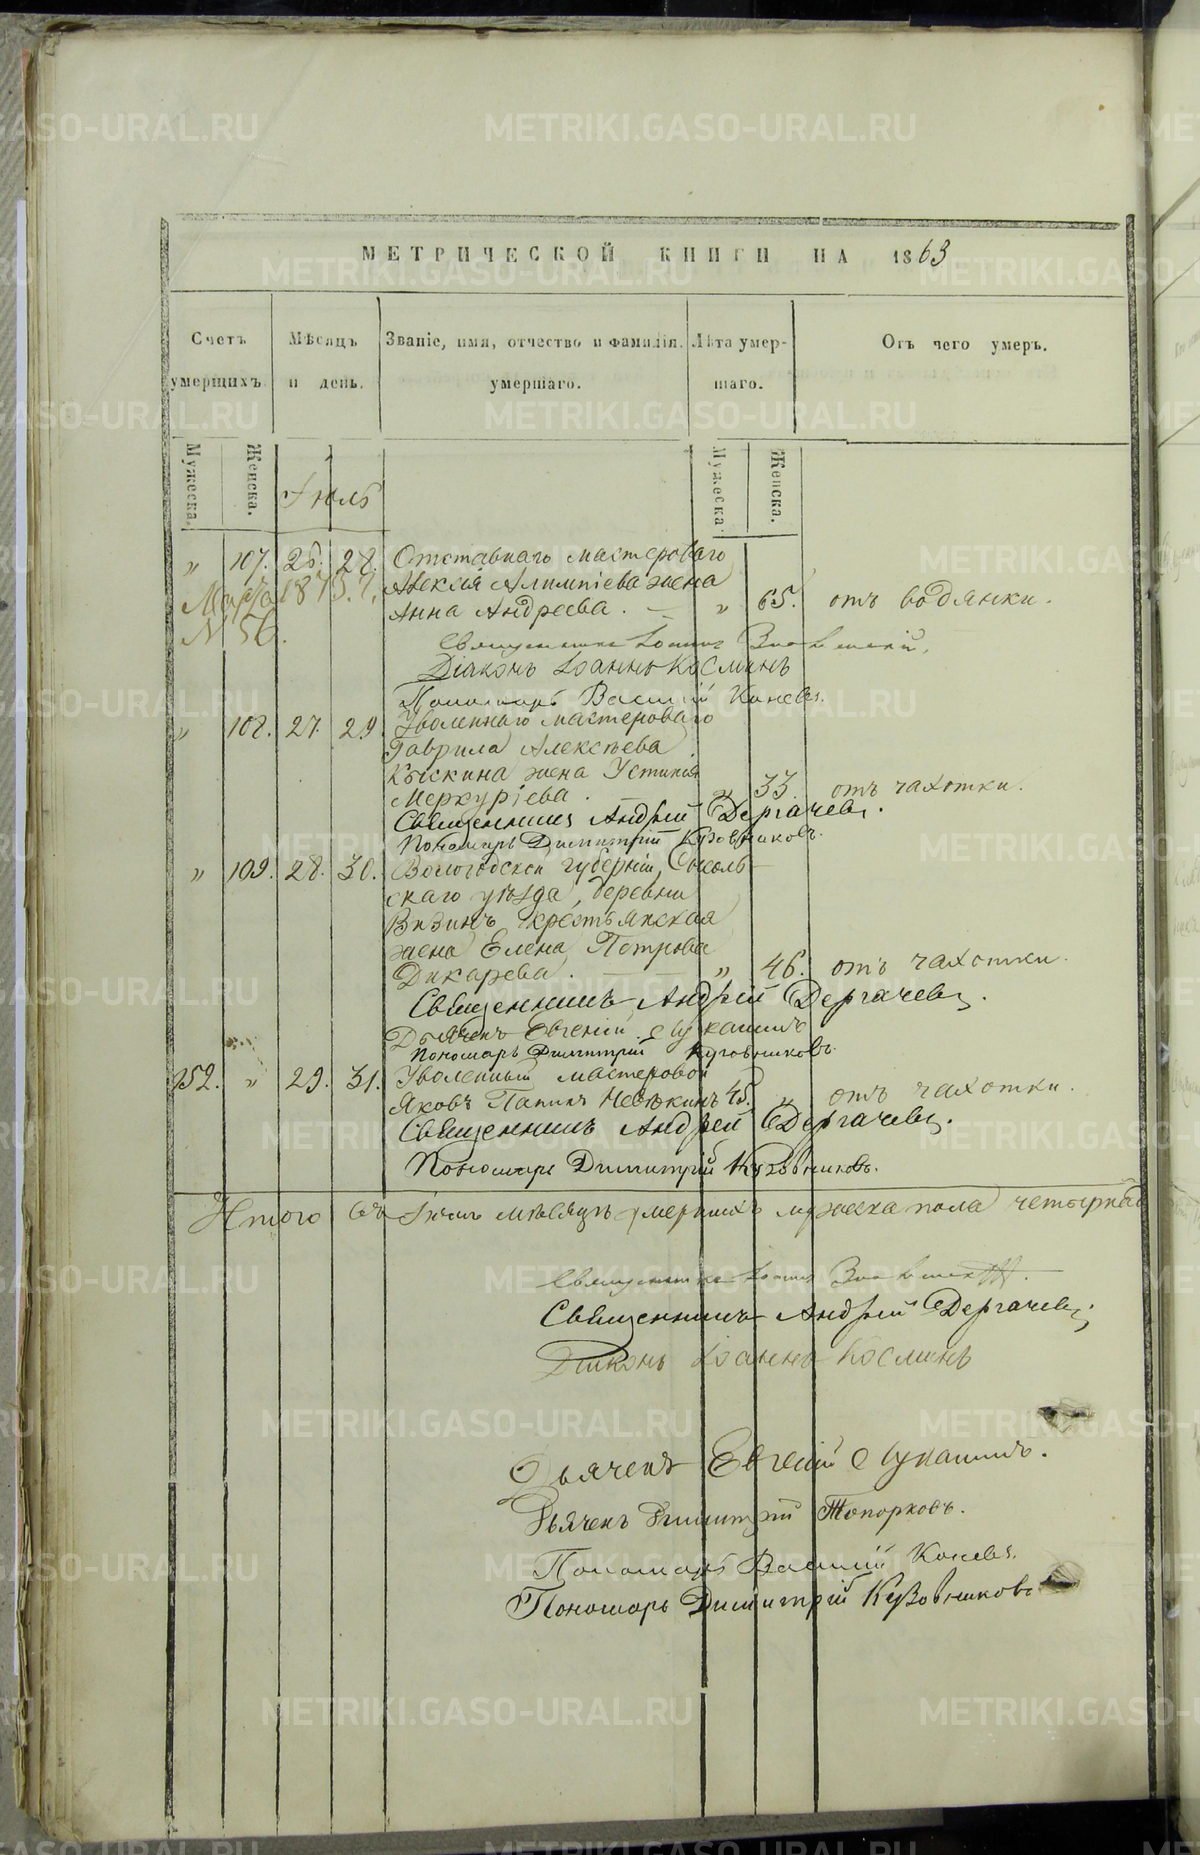 МЕТРИЧЕСКОЙ КНИГИ НА 1863
Счетъ умершихъ.
Мѣсяцъ и день.
Званіе, имя, отчество и фамилія умершаго.
Лѣта умершаго.
Отъ чего умеръ.
Мужеска. Женска. Іюль Мужеска. Женска.
„ 107. 26. 28. Отставнаго мастероваго
Алексѣя Алимпіева жена
Анна Андреева. — „ 65. отъ водянки.
Марта 1875 г.
N 56.
Священникъ Іоаннъ
Діаконъ Іоаннъ Косминъ
Пономарь Василій Коневъ.
„ 108. 27. 29. Уволеннаго мастероваго
Гаврила Алексѣева
Кыскина жена Устинья
Меркуріева. „ 33. отъ чахотки.
Священникъ Андрей Дергачевъ.
Пономарь Димитрій Кузовниковъ.
„ 109. 28. 30. Вологодской губерніи, Сысоль-
скаго уѣзда, деревни
Визинъ крестьянская
жена Елена Петрова
Дикарева. — „ 46. отъ чахотки.
Священникъ Андрей Дергачевъ.
Дьячекъ Евгеній Лукашинъ
Пономарь Димитрій Кузовниковъ.
152. „ 29. 31. Уволенный мастеровой
Яковъ Папинъ 45. „ отъ чахотки.
Священникъ Андрей Дергачевъ.
Пономарь Димитрій Кузовниковъ.
Итого въ Іюлѣ мѣсяцѣ умершихъ мужеска пола
Священникъ Іоаннъ
Священникъ Андрей Дергачевъ.
Діаконъ Іоаннъ Косминъ
Дьячекъ Евгеній Лукашинъ.
Дьячекъ Димитрій Топорковъ.
Пономарь Василій Коневъ.
Пономарь Димитрій Кузовниковъ
METRIKI.GASO-URAL.RU